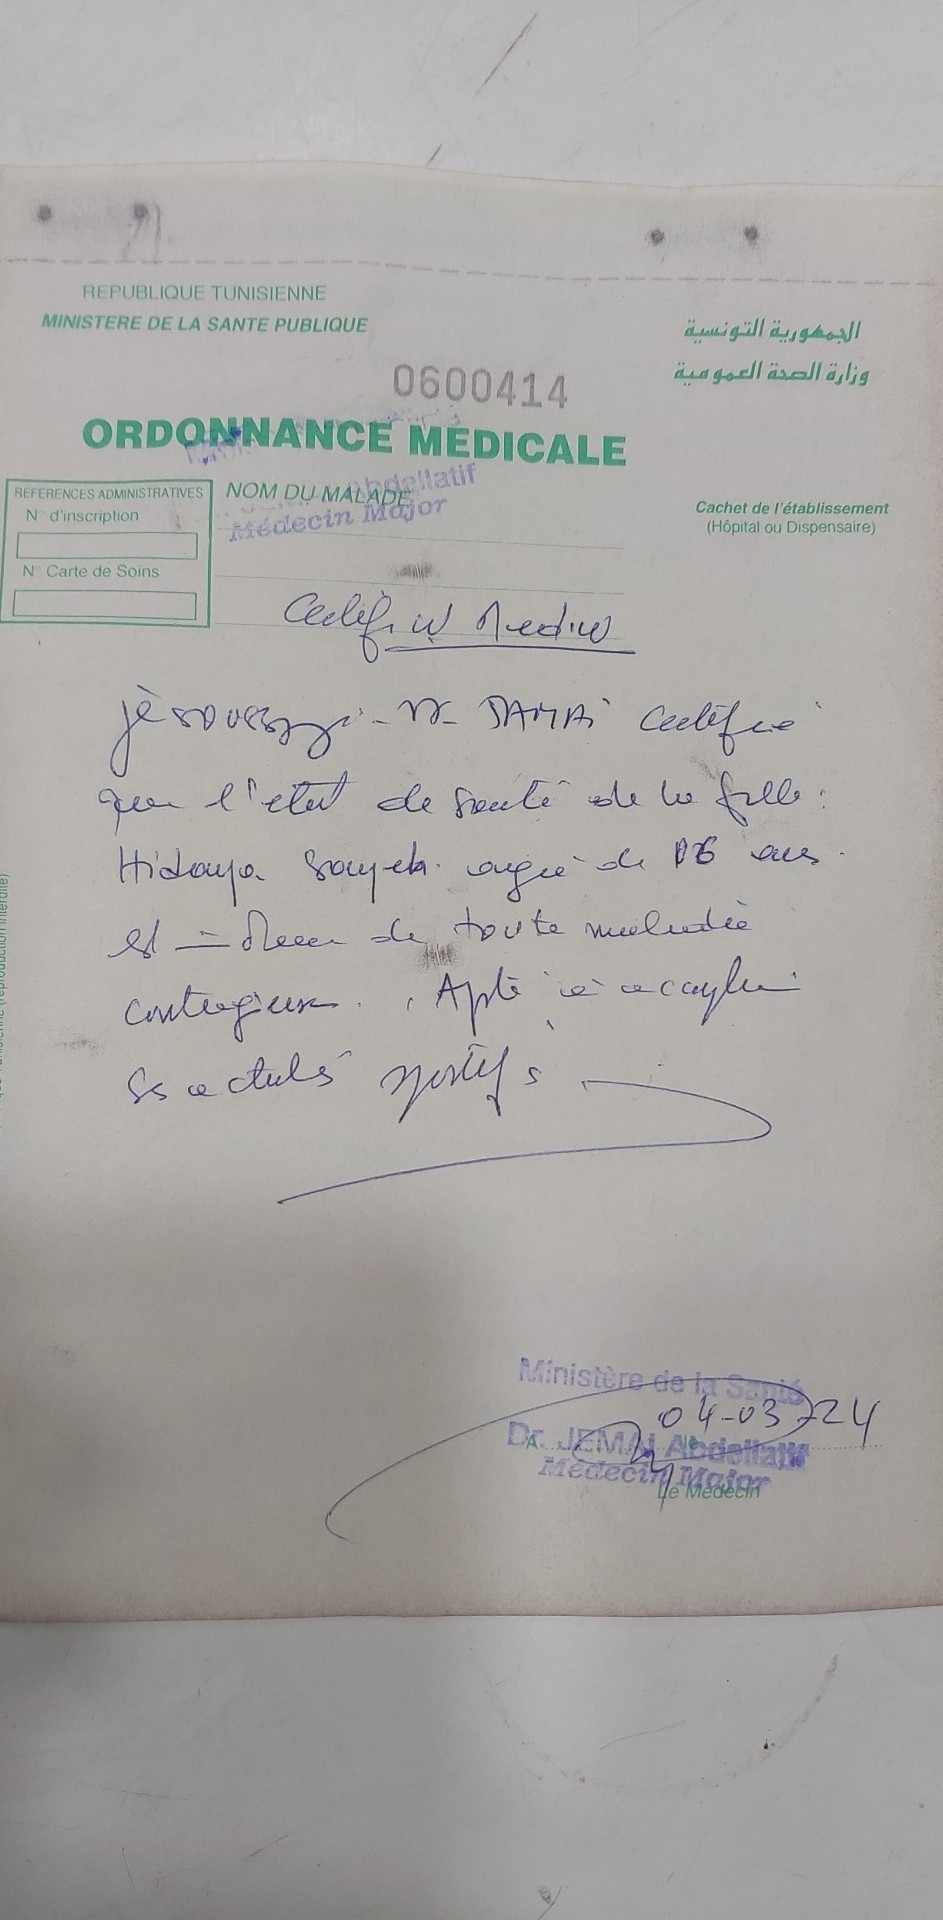 REPUBLIQUE TUNISIENNE
MINISTERE DE LA SANTE PUBLIQUE
الجمهورية التونسية
وزارة الصحة العمومية
0600414
ORDONNANCE MEDICALE
REFERENCES ADMINISTRATIVES
N° d'inscription
N° Carte de Soins
NOM DU MALADE
Abdellatif
Médecin Major
Cachet de l'établissement
(Hôpital ou Dispensaire)
Certificat Medical
je soussigné Dr JAMAI certifie
que l'état de santé de la fille :
Hidaya Sayeh agée de 06 ans
est indemne de toute maladie
contagieuse. Apte à accomplir
ses activités sportifs
Ministère de la Santé
04-03-24
Dr. JEMAI Abdellatif
Médecin Major
Le Médecin